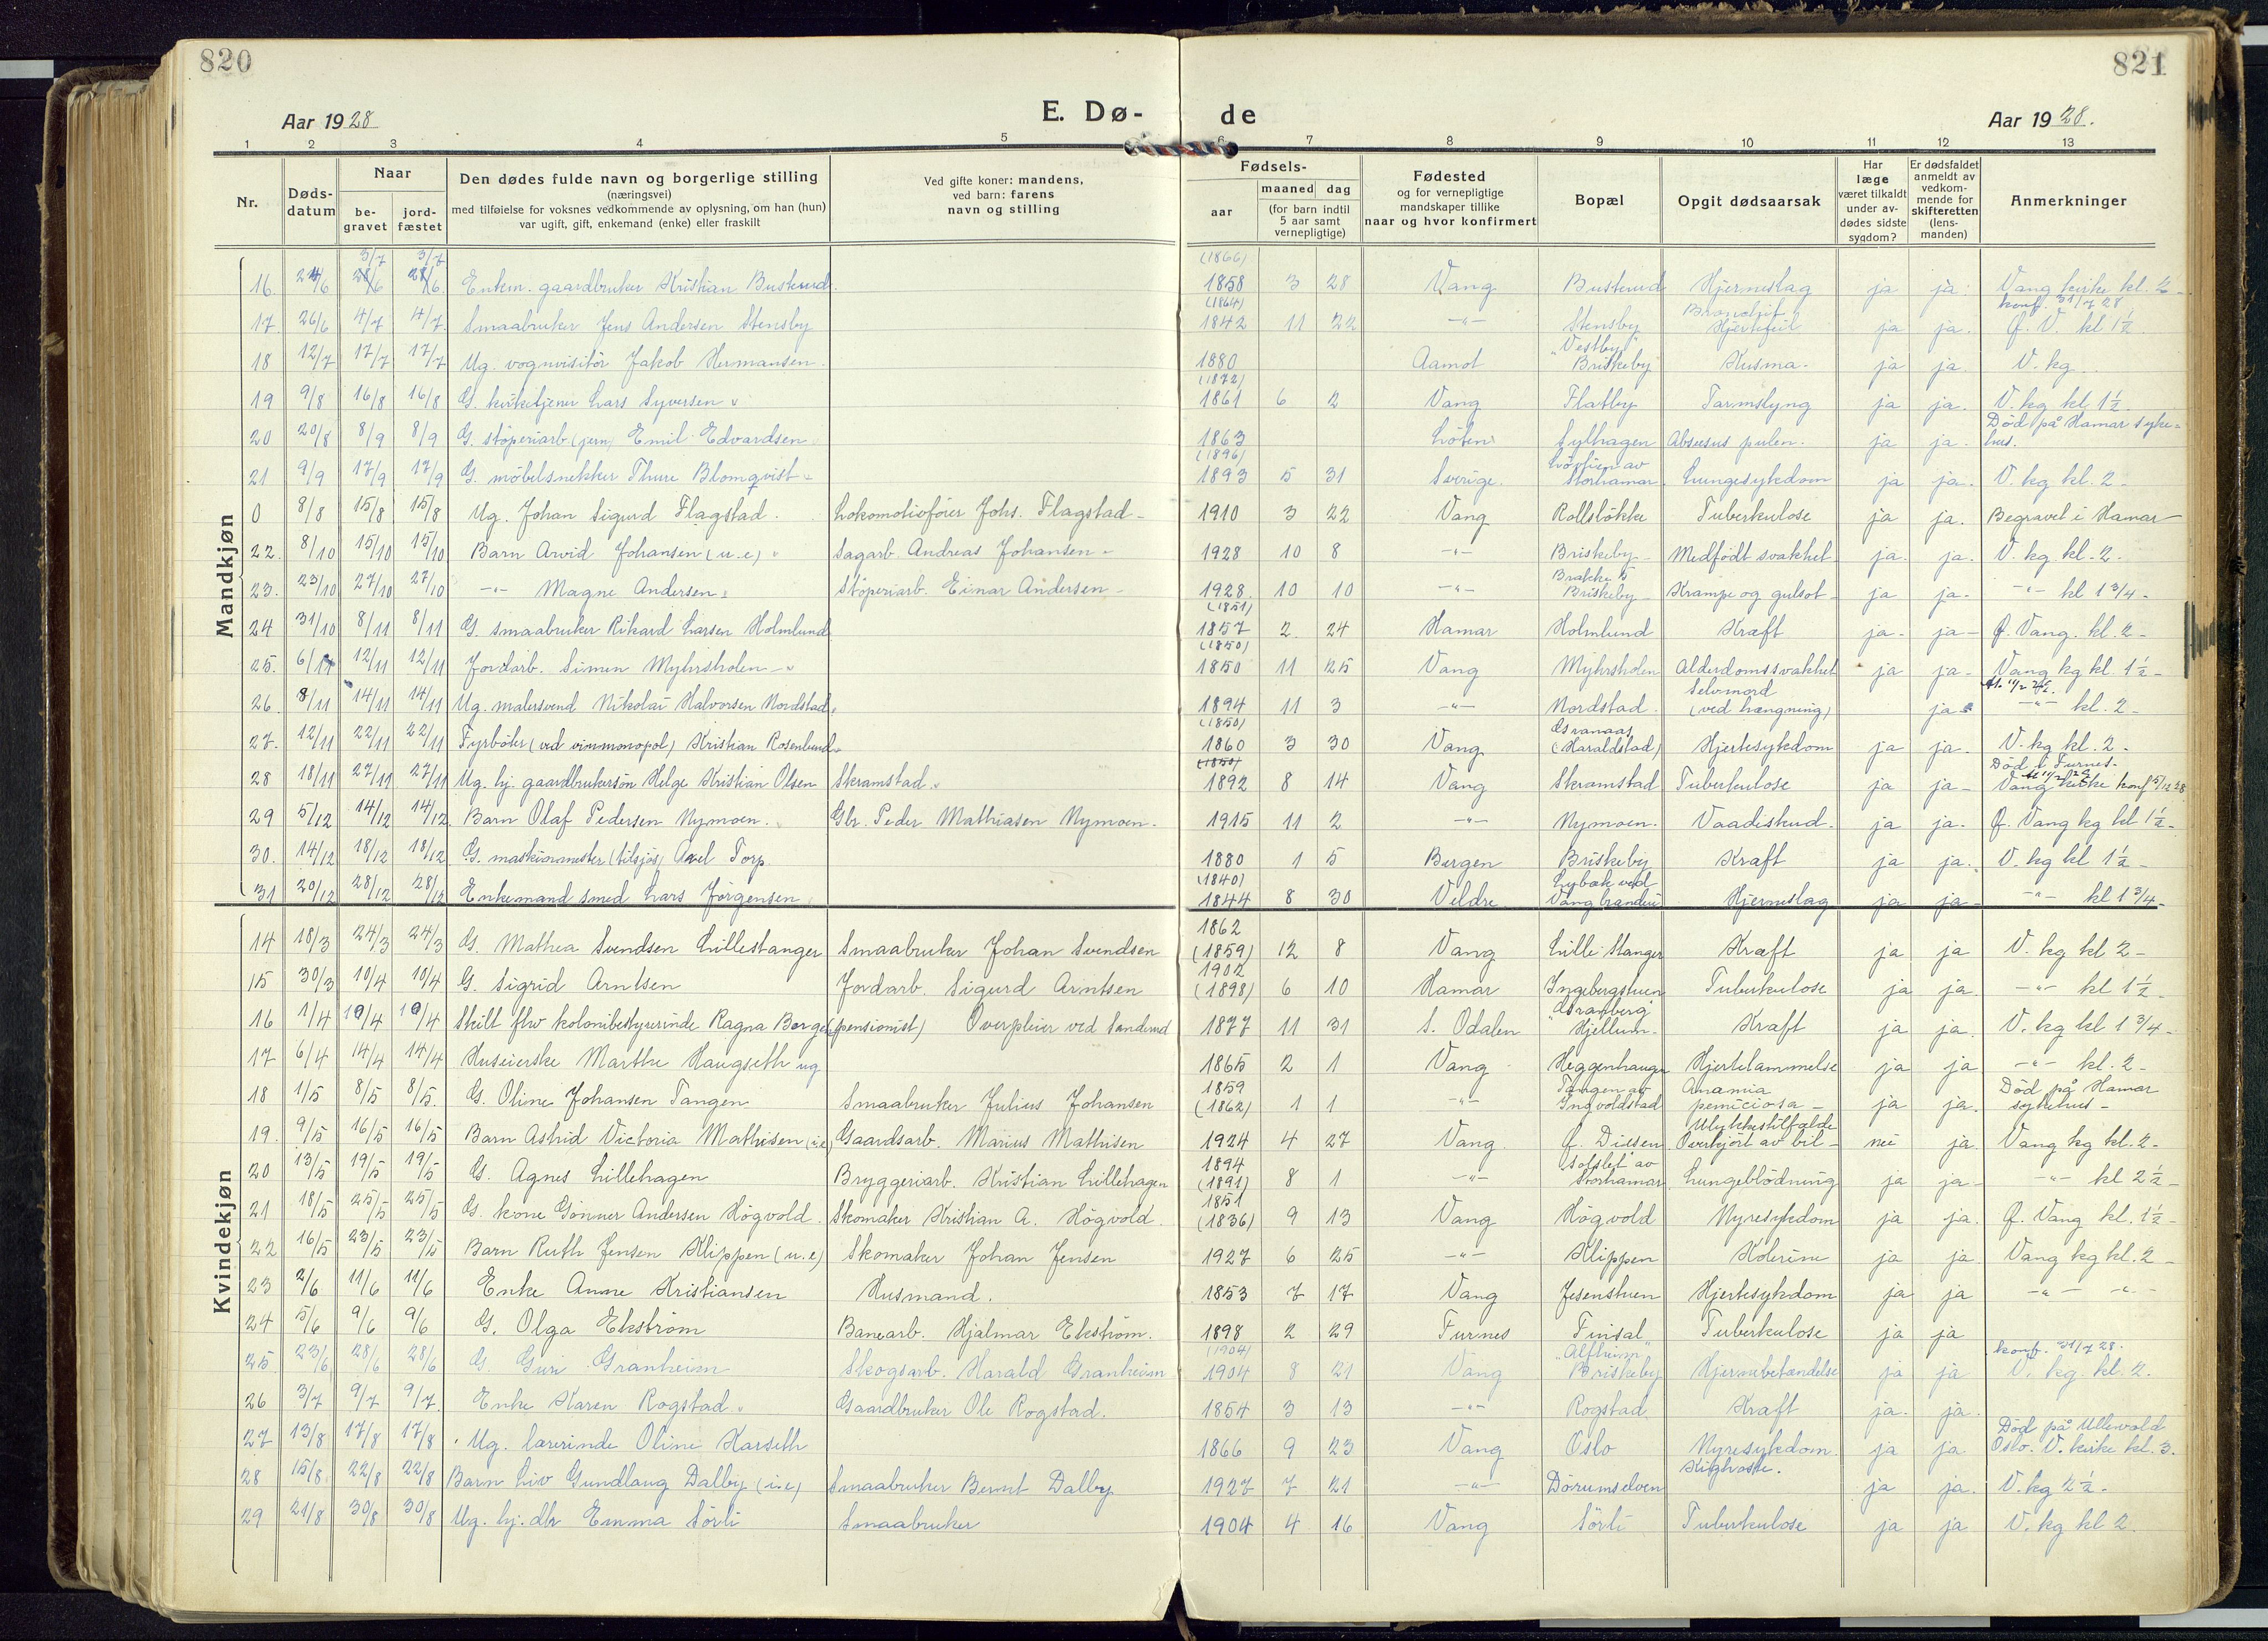 820
821
Aar 1928
E. Dø-
de
Aar 1928.
1 2 3 4 5 6 7 8 9 10 11 12 13
Nr.
Døds-
datum
Naar
be-
gravet
jord-
fæstet
Den dødes fulde navn og borgerlige stilling
(næringsvei)
med tilføielse for voksnes vedkommende av oplysning, om han (hun)
var ugift, gift, enkemand (enke) eller fraskilt
Ved gifte koner: mandens,
ved barn: farens
navn og stilling
Fødsels-
aar
maaned dag
(for barn indtil
5 aar samt
vernepligtige)
Fødested
og for vernepligtige
mandskaper tillike
naar og hvor konfirmert
Bopæl
Opgit dødsaarsak
Har
læge
været tilkaldt
under av-
dødes sidste
sygdom?
Er dødsfaldet
anmeldt av
vedkom-
mende for
skifteretten
(lens-
manden)
Anmerkninger
Mandkjøn
3/7 3/7 (1866)
16. 24/6 28/6 28/6 Enkem. gaardbruker Kristian Buskerud 1858 3 28 Vang Buskerud Hjerneslag ja ja Vang kirke kl. 2
(1864) konf. 31/7 28
17. 26/6 4/7 4/7 Smaabruker Jens Andersen Stensby 1842 11 22 -"- Stensby Hjertefeil ja ja. Ø. V. kl 1½
"Vestby"
18 12/7 17/7 17/7 Ug. vognvisitör Jakob Hermansen. 1880 Aamot Briskeby Kusma. ja ja. V. kg.
(1872)
19 9/8 16/8 16/8 G. kirketjener Lars Syversen 1861 6 2 Vang Flatby Tarmslyng ja ja. V. kg kl 1½.
Død på Hamar syke-
20 20/8 8/9 8/9 G. støperiarb (jern) Emil Edvardsen 1863 Løten Sylhagen Abscesus pulm. ja ja. hus.
(1896) av
21 9/9 17/9 17/9 G. møbelsnekker Thure Blomqvist 1893 5 31 Sverige. Storhamar Lungesykdom ja ja. V. kg kl. 2 -
0 8/8 15/8 15/8 Ug. Johan Sigurd Flagstad. Lokomotivfører Johs. Flagstad - 1910 3 22 Vang Rollsløkke Tuberkulose ja ja. Begravet i Hamar
22. 8/10 15/10 15/10 Barn Arvid Johansen (u.e) Sagarb. Andreas Johansen 1928 10 8 -"- Briskeby Medfødt svakhet ja. ja. V. kg kl. 2.
Brakke 5
23. 23/10 27/10 27/10 -"- Magne Andersen Støperiarb. Einar Andersen - 1928. 10 10 -"- Briskeby Krampe og gulsot ja ja. -"- kl 1 3/4 -
(1851)
24 31/10 8/11 8/11 G. smaabruker Rikard Larsen Holmlund 1857 2 24 Hamar Holmlund Kræft ja. ja - Ø. Vang. kl. 2 -
(1850)
25. 6/11 12/11 12/11 Jordarb. Simen Myhrsholen 1850 11 25 Vang Myhrsholen Alderdomssvakhet ja ja - Vang kg kl. 1½ -
Selvmord
26. 8/11 14/11 14/11 Ug. malersvend Nikolai Halvorsen Nordstad 1894 11 3 -"- Nordstad (ved hængning) ja -"- kl. 2 -
(1850) Granaas
27. 12/11 22/11 22/11 Fyrbøter (ved vinmonopol) Kristian Rosenlund 1860 3 30 Vang (Haraldstad) Hjertesykdom ja ja. V. kg kl. 2 -
(1850) Død i Furnes.
28 18/11 27/11 27/11 Ug. hj. gaardbrukersøn Helge Kristian Olsen Skramstad 1892 8 14 Vang Skramstad Tuberkulose ja ja - Vang kirke konf 5/12 28
29 5/12 14/12 14/12. Barn Olaf Pedersen Nymoen. Gbr. Peder Mathiasen Nymoen. 1915 11 2 -"- Nymoen. Vaadeskud. ja ja. Ø. Vang kg kl 1½.
30. 14/12 18/12 18/12 G. maskinmester (tilsjøs) Axel Torp. 1880 1 5 Bergen Briskeby Kræft ja ja. V. kg kl 1½ -
(1840) Lybæk ved
31 20/12 28/12 28/12 Enkemand smed Lars Jørgensen 1844 8 30 Veldre Vang brænderi Hjerneslag ja ja - -"- kl 1 3/4 -
Kvindekjøn
1862
14 18/3 24/3 24/3 G. Mathea Svendsen Lillestanger Smaabruker Johan Svendsen (1859) 12 8 Vang Lille Stanger Kræft ja ja V. kg kl 2 -
1902
15 30/3 10/4 10/4 G. Sigrid Arntsen Jordarb. Sigurd Arntsen (1898) 6 10 Hamar Ingebergstuen Tuberkulose ja ja. -"- kl 1½
"Granberg"
16 1/4 10/4 10/4 Skilt flw kolonibestyrerinde Ragna Berger (pensionist) Overpleier ved Sanderud 1877 11 31 S. Odalen Hjellum. Kræft ja ja. V. kg kl 1 3/4 -
17 6/4 14/4 14/4 Huseierske Marthe Haugseth ug 1865 2 1 Vang Heggenhaugen Hjertelammelse ja ja -"- kl. 2 -
1859 Tangen av Anæmia Død på Hamar
18 1/5 8/5 8/5. G. Oline Johansen Tangen Smaabruker Julius Johansen (1862) 1 1 -"- Ingvoldstad perniciosa - ja ja. sykehus -
Ulykkestilfælde
19. 9/5 16/5 16/5 Barn Astrid Victoria Mathisen (u.e) Gaardsarb. Marius Mathisen 1924 4 27 Vang. Ø. Disen Overkjørt av bil - nei ja. Vang kg kl. 2 -
1894 "Solslet" av
20 13/5 19/5 19/5 G. Agnes Lillehagen Bryggeriarb. Kristian Lillehagen (1891) 8 1 -"- Storhamar Lungeblødning ja ja - -"- kl 2½ -
1851
21 18/5 25/5 25/5 G. kone Gønner Andersen Høgvold. Skomaker Kristian A. Høgvold. (1836) 9 13 Vang Høgvold Nyresykdom ja ja. Ø. Vang kl. 1½ -
22 16/5 23/5 23/5 Barn Ruth Jensen Klippen (u.e) Skomaker Johan Jensen 1927 6 25 -"- Klippen Kolerine ja ja Vang kg kl. 2 -
23 2/6 11/6 11/6 Enke Anne Kristiansen Husmand. 1853 7 17 Vang Jesenstuen Hjertesykdom ja ja -"- -"-
24 5/6 9/6 9/6 G. Olga Ekstrøm Banearb. Hjalmar Ekstrøm. 1898 2 29 Furnes Finsal Tuberkulose ja ja
(1904) "Alfheim" konf. 31/7 28.
25 23/6 28/6 28/6 G. Guri Granheim Skogsarb. Harald Granheim 1904 8 21 Vang Briskeby Hjernebetændelse ja ja V. kg. kl. 2.
26 3/7 9/7 9/7. Enke Karen Rogstad Gaardbruker Ole Rogstad. 1854 3 13 -"- Rogstad Kræft ja. ja.
Død på Ullevold
27 13/8 17/8 17/8 Ug. lærerinde Oline Karseth 1866 9 23 Vang Oslo Nyresykdom. ja ja Oslo. V. kirke kl. 3.
28 15/8 22/8 22/8 Barn Liv Gundlaug Dalby (u.e) Smaabruker Bernt Dalby 1927 7 21 -"- Dørumselven Kighoste. ja ja. V. kg 2½ -
29 21/8 30/8 30/8 Ug. hj. dtr Emma Sörli Smaabruker 1904 4 16 Vang Sörli Tuberkulose ja ja V. kg kl 2.